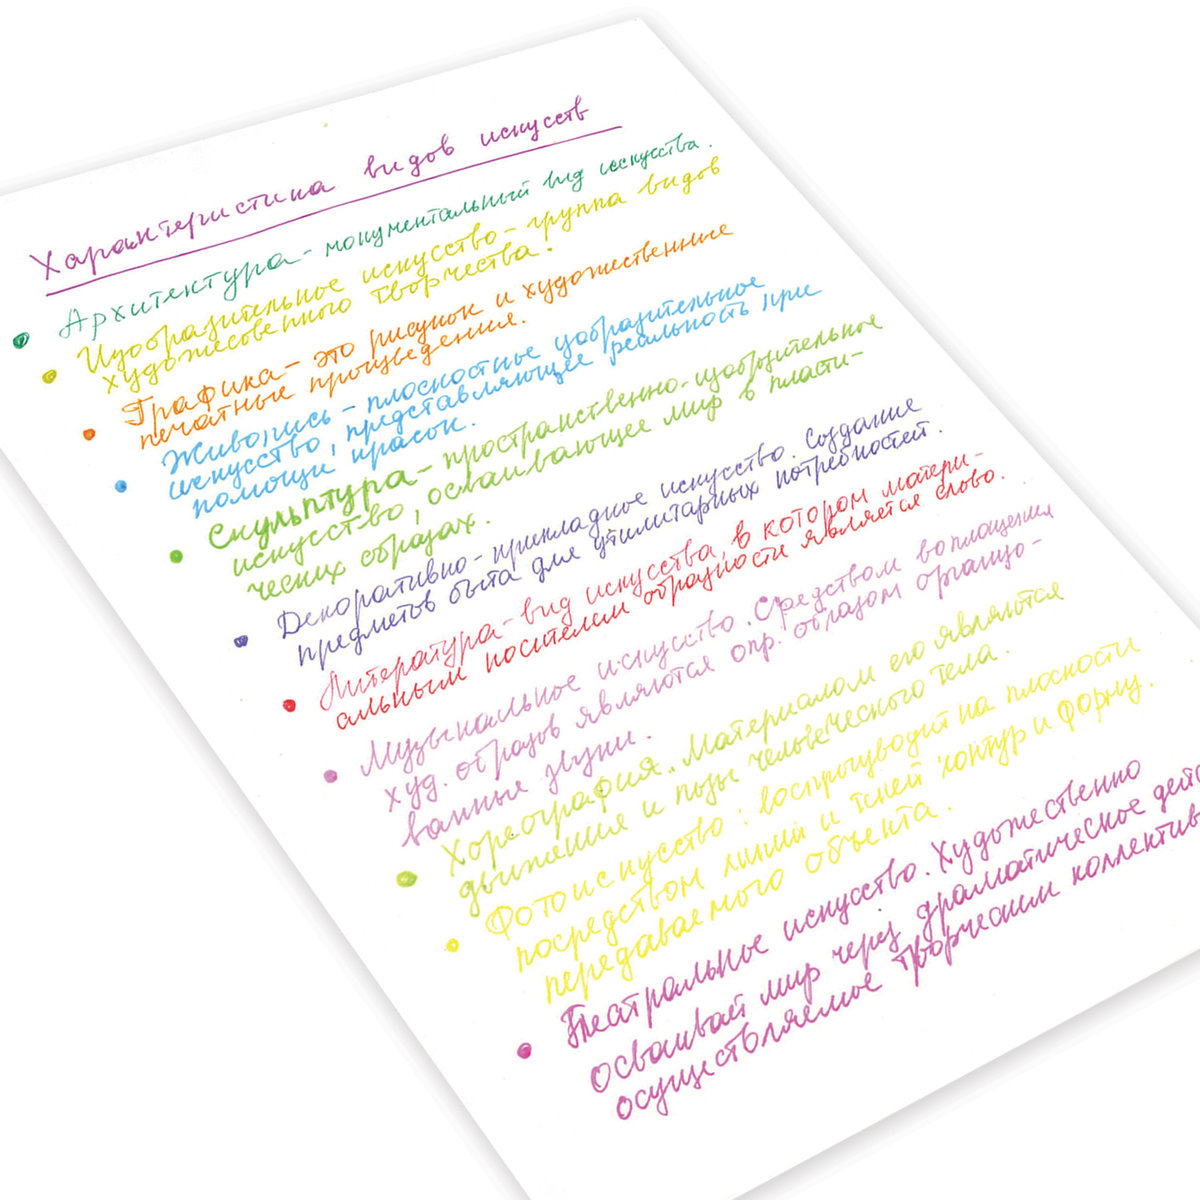 Характеристика видов искусств
Архитектура - монументальный вид искусства.
Изобразительное искусство - группа видов
художественного творчества.
Графика - это рисунок и художественные
печатные произведения.
Живопись - плоскостное изобразительное
искусство, представляющее реальность при
помощи красок.
Скульптура - пространственно-изобразительное
искусство, осваивающее мир в пласти-
ческих образах.
Декоративно-прикладное искусство. Создание
предметов быта для утилитарных потребностей.
Литература - вид искусства, в котором матери-
альным носителем образности является слово.
Музыкальное искусство. Средством воплощения
худ. образов являются опр. образом организо-
ванные звуки.
Хореография. Материалом его являются
движения и позы человеческого тела.
Фотоискусство: воспроизводит на плоскости
посредством линий и теней контур и форму
передаваемого объекта.
Театральное искусство. Художественно
осваивает мир через драматическое дейс
осуществляемое творческим коллектив